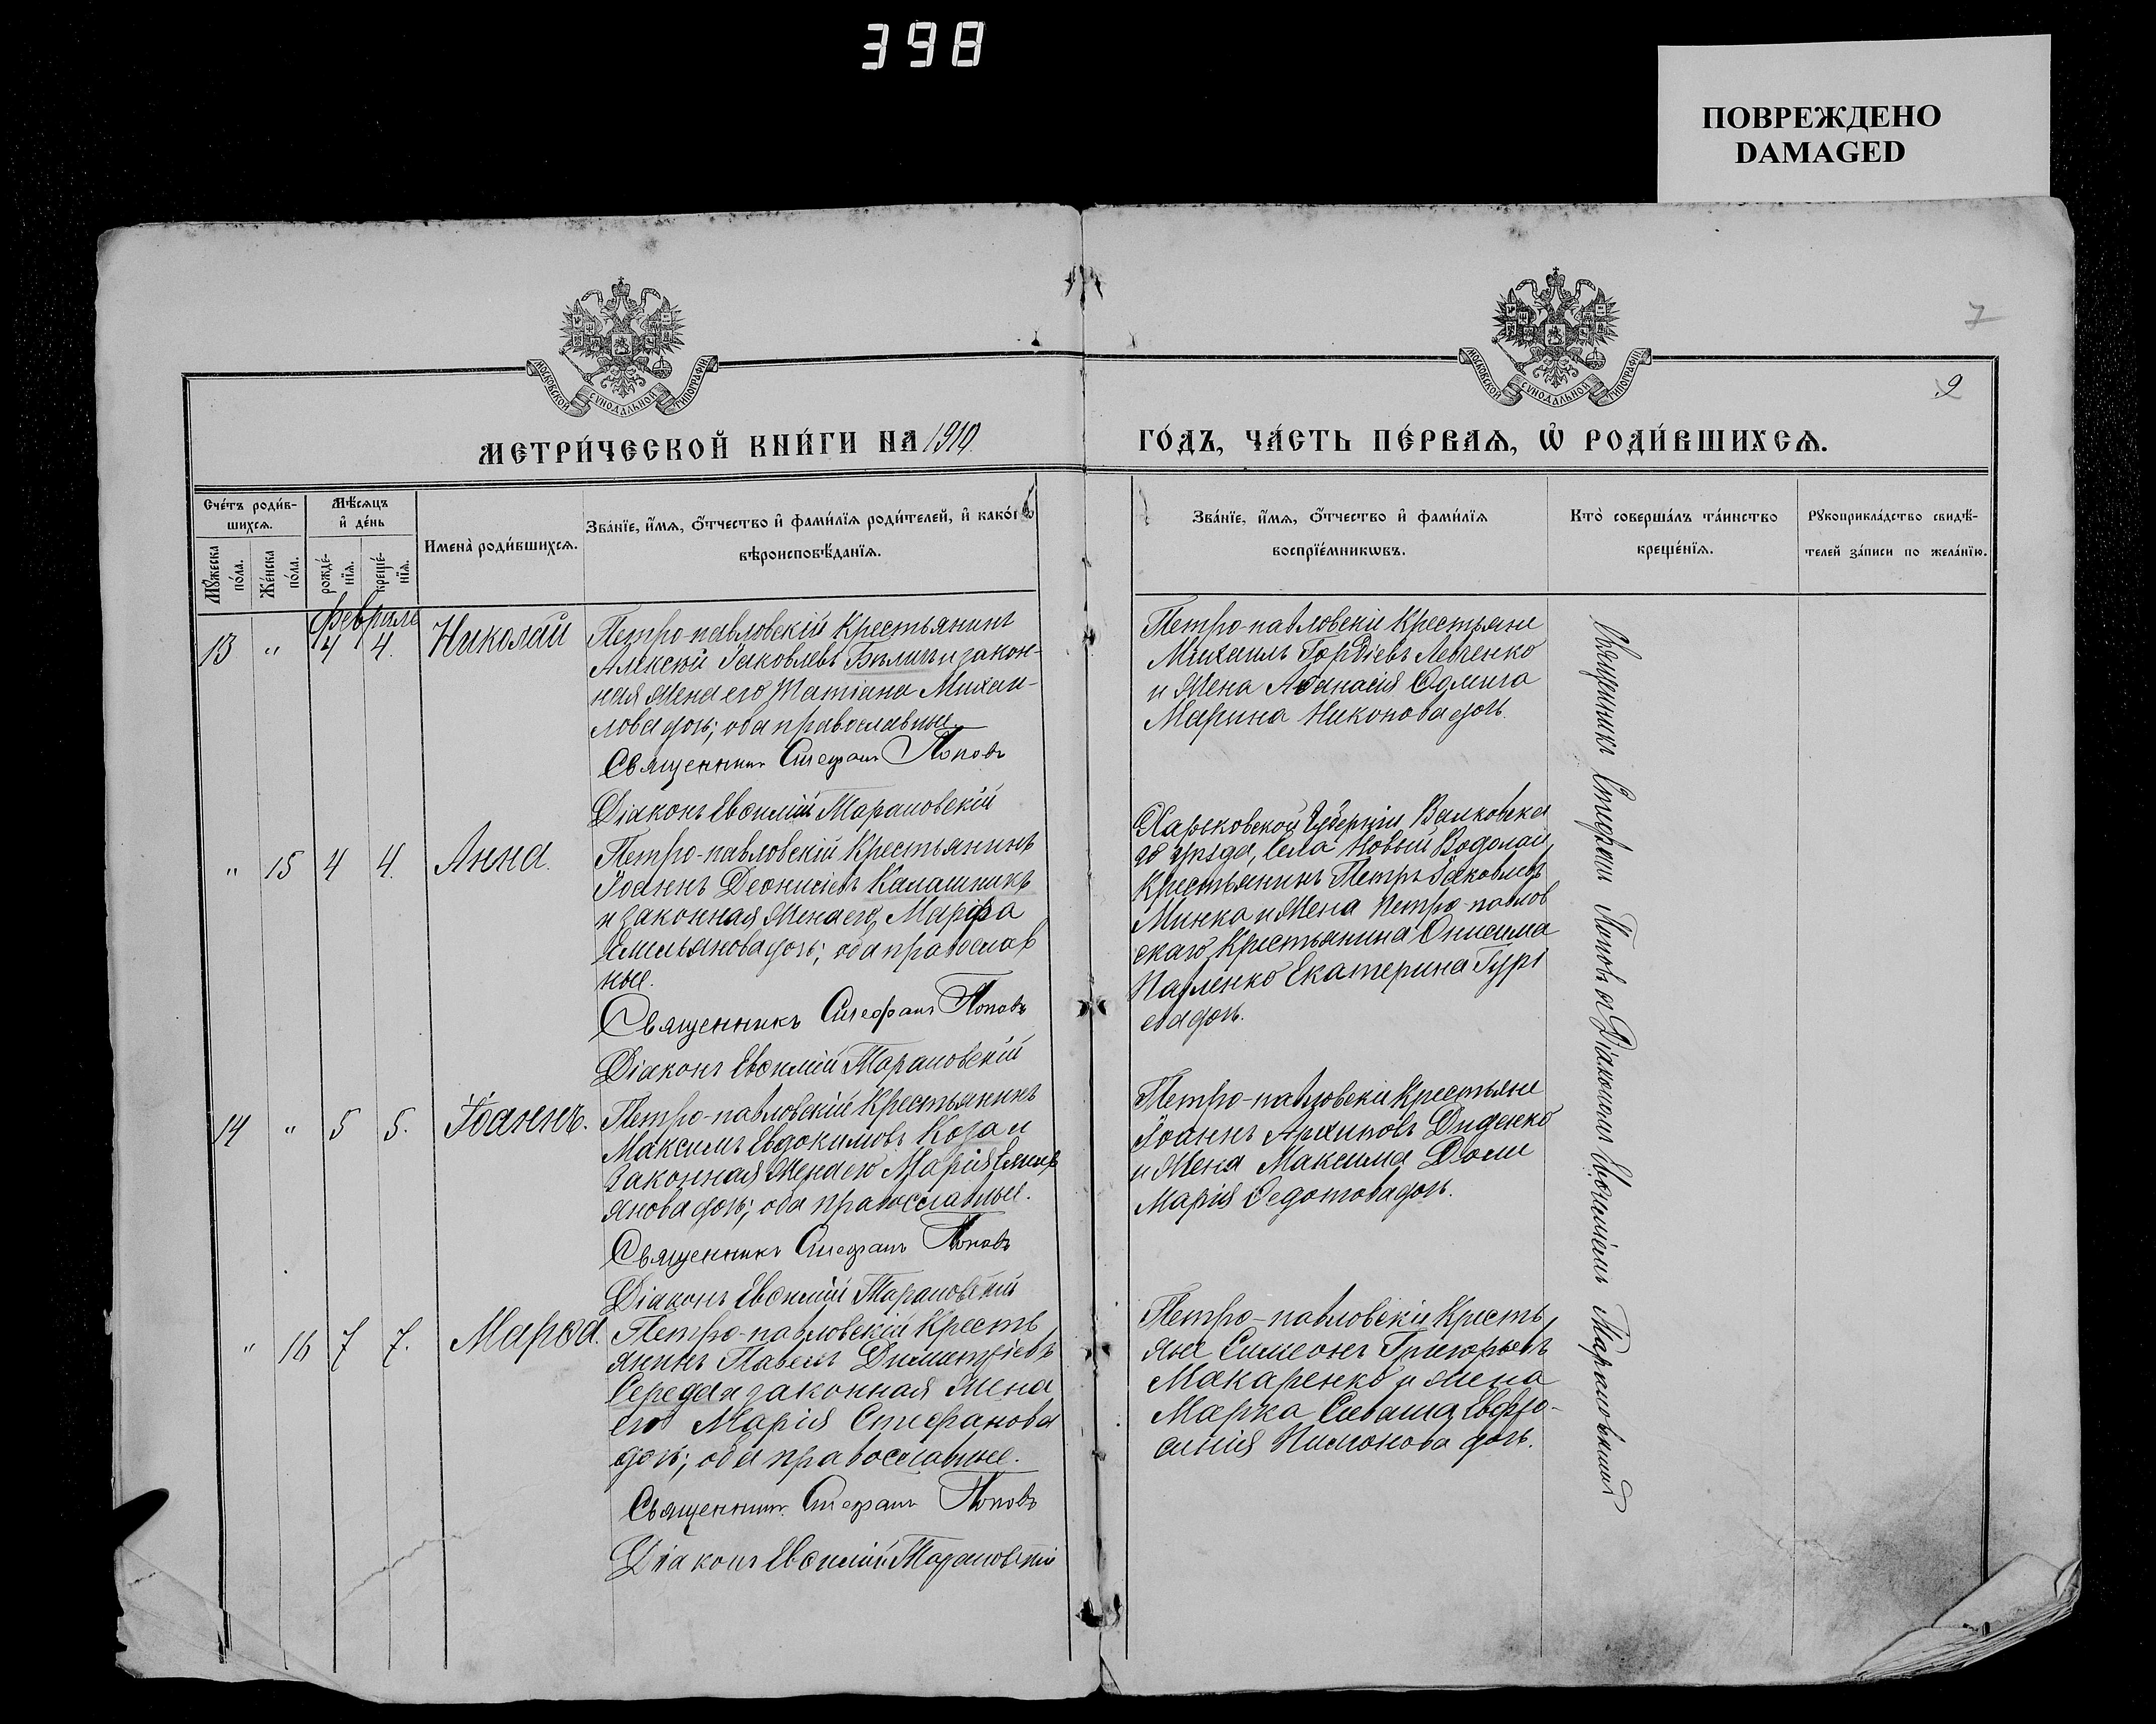 398
ПОВРЕЖДЕНО
DAMAGED
7
9
МОСКОВСКОЙ СѴНОДАЛЬНОЙ ТИПОГРАФІИ
МОСКОВСКОЙ СѴНОДАЛЬНОЙ ТИПОГРАФІИ
МЕТРИ́ЧЕСКОЙ КНИ́ГИ НА 1910
ГО́ДЪ, ЧА́СТЬ ПЕ́РВАѦ, Ѡ҆ РОДИ́ВШИХСѦ.
Сче́тъ роди́в-
шихсѧ.
Мꙋ́жеска
по́ла.
Же́нска
по́ла.
Мѣ́сѧцъ
и҆ де́нь
рожде́-
нїѧ.
креще́-
нїѧ.
Имена̀ роди́вшихсѧ.
Зва́нїе, и҆́мѧ, ѻ҆́тчество и҆ фами́лїѧ роди́телей, и҆ како́гѡ
вѣроисповѣ́данїѧ.
Зва́нїе, и҆́мѧ, ѻ҆́тчество и҆ фами́лїѧ
воспрїе́мникѡвъ.
Кто̀ соверша́лъ та́инство
креще́нїѧ.
Рꙋкоприкла́дство свидѣ́-
телей за́писи по жела́нїю.
Февраль
13 " 4 4. Николай
Петро-павловскій Крестьянинъ
Алексѣй Іаковлевъ Билыкъ и закон-
ная жена его Татіана Михаи-
лова дочь; оба православные.
Священникъ Стефанъ Поповъ
Діаконъ Евѳимій Тарановскій
Петро-павловскіе Крестьяне
Михаилъ Гордіевъ Левченко
и жена Аѳанасія
Марина Никонова дочь.
" 15 4 4. Анна.
Петро-павловскій Крестьянинъ
Іоаннъ Деонисіевъ Калашникъ
и законная жена его Марѳа
Емильянова дочь; оба православ
ные.
Священникъ Стефанъ Поповъ
Діаконъ Евѳимій Тарановскій
Харьковской Губерніи Валковска
го уѣзда, Села Новый Водолай,
Крестьянинъ Петръ Іаковлевъ
Минка и жена Петро-павлов
скаго Крестьянина Онисима
Павленко Екатерина Гурі
ева дочь.
14 " 5 5. Іоаннъ.
Петро-павловскій Крестьянинъ
Максимъ Евдокимовъ Коза и
законная жена его Марія Емиль
янова дочь; оба православные.
Священникъ Стефанъ Поповъ
Діаконъ Евѳимій Тарановскій
Петро-павловскіе Крестьяне
Іоаннъ Архиповъ Диденко
и жена Максима Доли
Марія Ѳедотова дочь.
" 16 7 7. Марѳа.
Петро-павловскій Кресть
янинъ Павелъ Димитріевъ
Середа и законная жена
его Марія Стефанова
дочь; оба православные.
Священникъ Стефанъ Поповъ
Діаконъ Евѳимій Тарановскій
Петро-павловскіе Кресть
яне Симеонъ Григорьевъ
Макаренко и жена
Марка Сиваша Евфро-
синія Пимонова дочь.
Священникъ Стефанъ Поповъ съ Діакономъ Евѳиміемъ Тарановскимъ